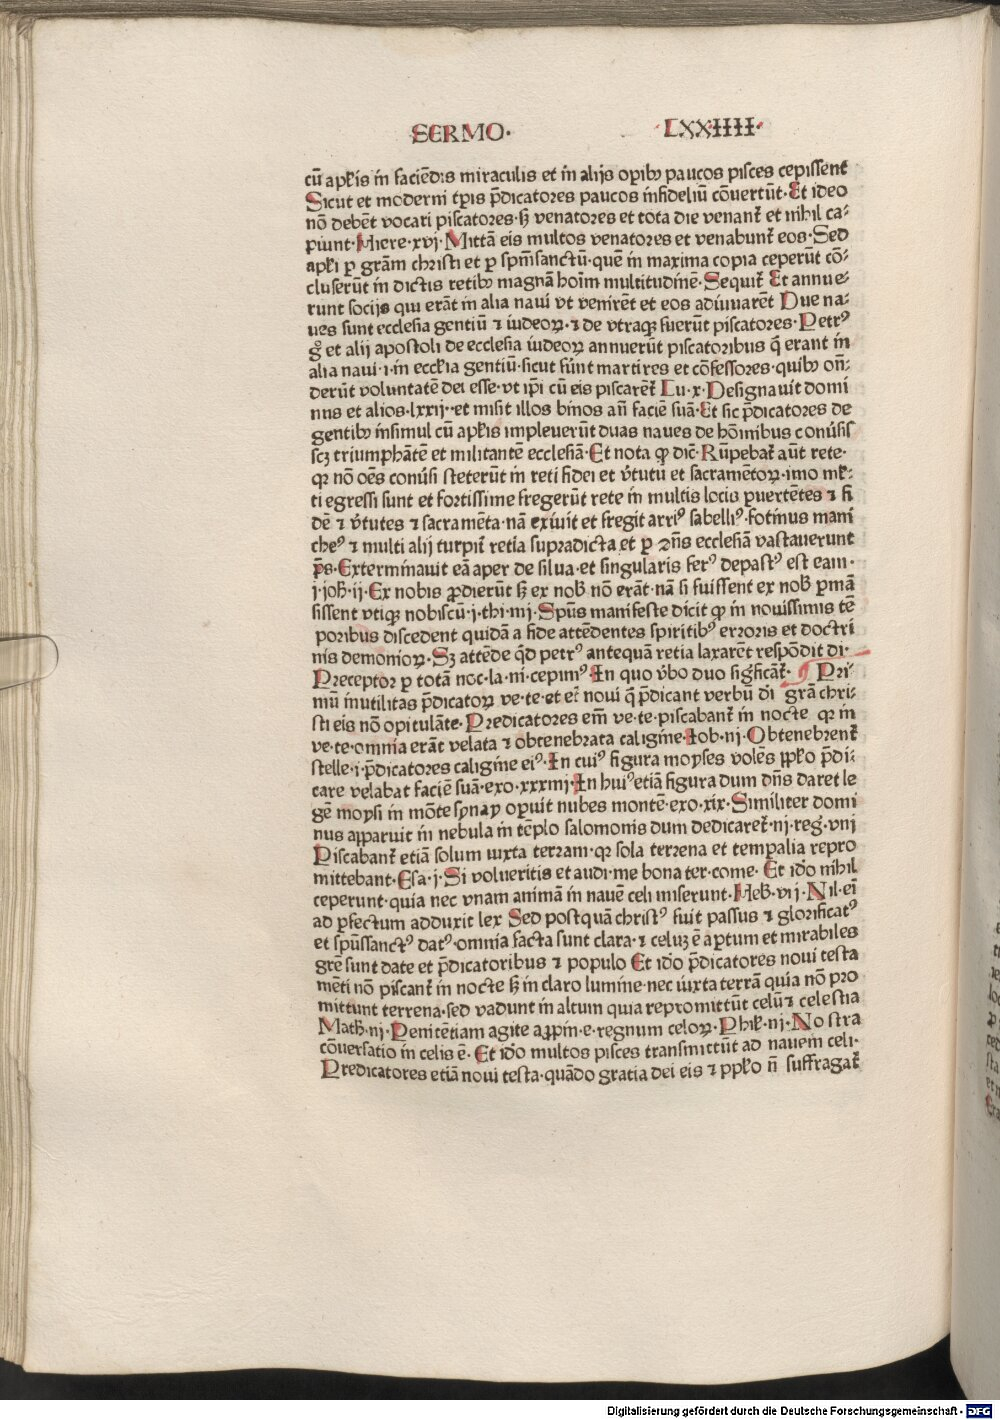 SERMO· ·LXXIIII·
cū apl'is in faciēdis miraculis et in alijs oꝑibꝰ paucos pisces cepissent
Sicut et moderni tꝑis p̄dicatores paucos infideliū cōuertūt· Et ideo
nō debēt vocari piscatores· sꝫ venatores et tota die venant᷑ et nihil ca⸗
piunt· Hiere·xvj· Mittā eis multos venatores et venabunt᷑ eos· Sed
apl'i ꝑ grām christi et ꝑ spm̄sanctū· quē in maxima copia ceperūt cō⸗
cluserūt in dictis retibꝰ magnā hoīm multitudinē· Sequit᷑ Et annue⸗
runt socijs qui erāt in alia naui vt venirēt et eos adiuuarēt Due na⸗
ues sunt ecclesia gentiū ⁊ iudeoꝝ· ⁊ de vtraqꝫ fuerūt piscatores· Petrꝰ
gͦ et alij apostoli de ecclesia iudeoꝝ annuerūt piscatoribus q̄ erant in
alia naui·i·in eccl'ia gentiū· sicut sunt martires et cōfessores· quibꝰ on̄⸗
derūt voluntatē dei esse· vt ip̄i cū eis piscarēt᷑ Lu·x· Designauit domi
nus et alios·lxxij··et misit illos binos an̄ faciē suā· Et sic p̄dicatores de
gentibꝰ insimul cū apl'is impleuerūt duas naues de hōinibus conuīsis
scꝫ triumphātē et militantē ecclesiā· Et nota ꝙ dic̄· Rūpebat᷑ aūt rete·
qꝛ nō oēs conuīsi steterūt in reti fidei et v̄tutū et sacramētoꝝ· imo ml'⸗
ti egressi sunt et fortissime fregerūt rete in multis locis ꝑuertētes ⁊ fi
dē ⁊ v̄tutes ⁊ sacramēta· nā exiuit et fregit arriꝰ sabelliꝰ· fotinus mani
cheꝰ ⁊ multi alij turpit᷑ retia supradicta et ꝑ ꝯn̄s ecclesiā vastauerunt
p̄s· Exterminauit eā aper de silua· et singularis ferꝰ depastꝰ est eam·
j·joh̄·ij· Ex nobis ꝓdierūt sꝫ ex nob᷑ nō erāt· nā si fuissent ex nob᷑ ꝑmā
sissent vtiqꝫ nobiscū· j·thi·iiij· Spūs manifeste dicit ꝙ in nouissimis tē
poribus discedent quidā a fide attēdentes spiritibꝰ erroris et doctri
nis demonioꝝ· Sꝫ attēde q̄d petrꝰ antequā retia laxarēt respōdit di·
Preceptor ꝑ totā noc·la·ni·cepimꝰ In quo v̄bo duo sig̃ficāt᷑· ¶ Pri⸗
mū inutilitas p̄dicatoꝝ ve·te·et eī noui q̄ p̄dicant verbū di grā chri⸗
sti eis nō opitulāte· Predicatores em̄ ve·te·piscabant᷑ in nocte qꝛ in
ve·te·omnia erāt velata ⁊ obtenebrata caligine· Iob·iij· Obtenebrent᷑
stelle·i·p̄dicatores caligine eiꝰ· In cuiꝰ figura moyses volēs ꝓpl'o p̄di⸗
care velabat faciē suā· exo·xxxiiij· In huiꝰ etiā figura dum dn̄s daret le
gē moysi in mōte synay oꝑuit nubes montē· exo·xix· Similiter domi
nus apparuit in nebula in tēplo salomonis dum dedicaret᷑· iij·reg·viij
Piscabant᷑ etiā solum iuxta terram· qꝛ sola terrena et temꝑalia repro
mittebant· Esa·j· Si volueritis et audi·me bona ter·come· Et idō nihil
ceperunt· quia nec vnam animā in nauē celi miserunt· Heb᷑·vij· Nil·eī
ad ꝑfectum adduxit lex Sed postquā christꝰ fuit passus ⁊ glorificatꝰ
et spūssanctꝰ datꝰ· omnia facta sunt clara· ⁊ celuꝫ ē aꝑtum et mirabiles
grē sunt date et p̄dicatoribus ⁊ populo Et idō p̄dicatores noui testa
mēti nō piscant᷑ in nocte sꝫ in claro lumine· nec iuxta terrā quia nō pro
mittunt terrena· sed vadunt in altum quia repromittūt celū ⁊ celestia
Math̄·iij· Penitētiam agite aꝓpin·e·regnum celoꝝ· Phil'·iij· No stra
cōuersatio in celis ē· Et idō multos pisces transmittūt ad nauem celi·
Predicatores etiā noui testa· quādo gratia dei eis ⁊ ppl'o n̄ suffragat᷑
Digitalisierung gefördert durch die Deutsche Forschungsgemeinschaft - DFG